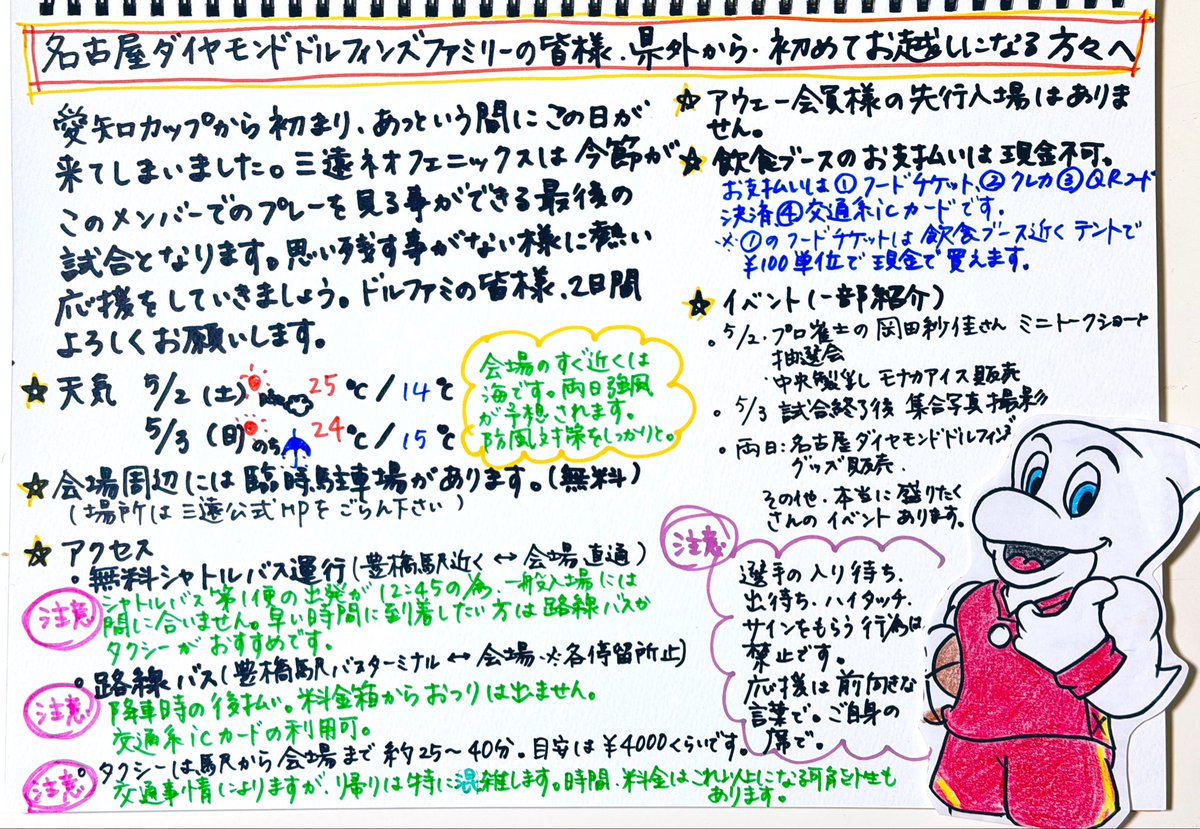 名古屋ダイヤモンドドルフィンズファミリーの皆様、県外から・初めてお越しになる方々へ
愛知カップから初まり、あっという間にこの日が
来てしまいました。三遠ネオフェニックスは今節が
このメンバーでのプレーを見る事ができる最後の
試合となります。思い残す事がない様に熱い
応援をしていきましょう。ドルファミの皆様、2日間
よろしくお願いします。
☆ 天気 5/2 (土) 25℃/14℃
5/3 (日) のち 24℃/15℃
会場のすぐ近くは
海です。両日強風
が予想されます。
防風対策をしっかりと。
☆ 会場周辺には臨時駐車場があります。(無料)
(場所は三遠公式HPをごらん下さい)
☆ アクセス
・無料シャトルバス運行(豊橋駅近く↔会場直通)
注意
シャトルバス第1便の出発が12:45の為、一般入場には
間に合いません。早い時間に到着したい方は路線バスか
タクシーがおすすめです。
・路線バス(豊橋駅バスターミナル↔会場※各停留所止)
注意
降車時の後払い。料金箱からおつりは出ません。
交通系icカードの利用可。
・タクシーは駅から会場まで約25〜40分。目安は¥4000くらいです。
注意
交通事情によりますが、帰りは特に混雑します。時間、料金はこれ以上になる可能性も
あります。
☆ アウェー会員様の先行入場はありま
せん。
☆ 飲食ブースのお支払いは現金不可。
お支払いは①フードチケット、②クレカ③QRコード
決済④交通系icカードです。
※①のフードチケットは飲食ブース近くテントで
¥100単位で現金で買えます。
☆ イベント(一部紹介)
・5/2・プロ雀士の岡田紗佳さん ミニトークショーと
抽選会
・中央製乳 モナカアイス販売
・5/3 試合終了後 集合写真撮影
・両日:名古屋ダイヤモンドドルフィンズ
グッズ販売.
その他、本当に盛りたく
さんのイベントあります。
注意
選手の入り待ち、
出待ち、ハイタッチ、
サインをもらう行為は
禁止です。
応援は前向きな
言葉で。ご自身の
席で。